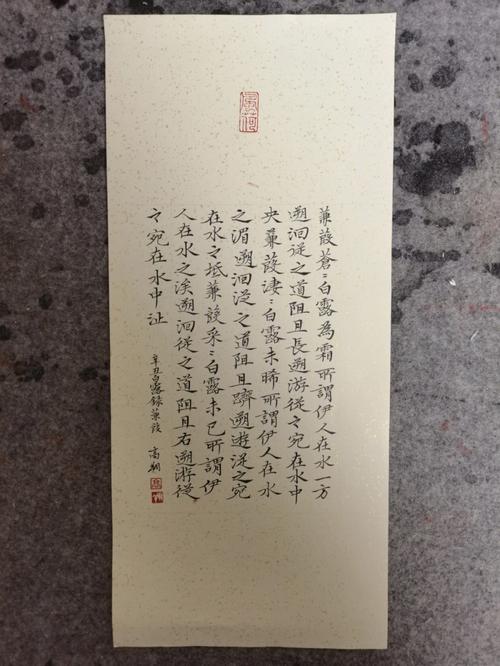 蒹葭蒼〻白露為霜所謂伊人在水一方
遡洄從之道阻且長遡游從之宛在水中
央蒹葭淒〻白露未晞所謂伊人在水
之湄遡洄從之道阻且躋遡遊從之宛
在水之坻蒹葭采〻白露未已所謂伊
人在水之涘遡洄從之道阻且右遡游從
之宛在水中沚
辛丑白露錄蒹葭 高